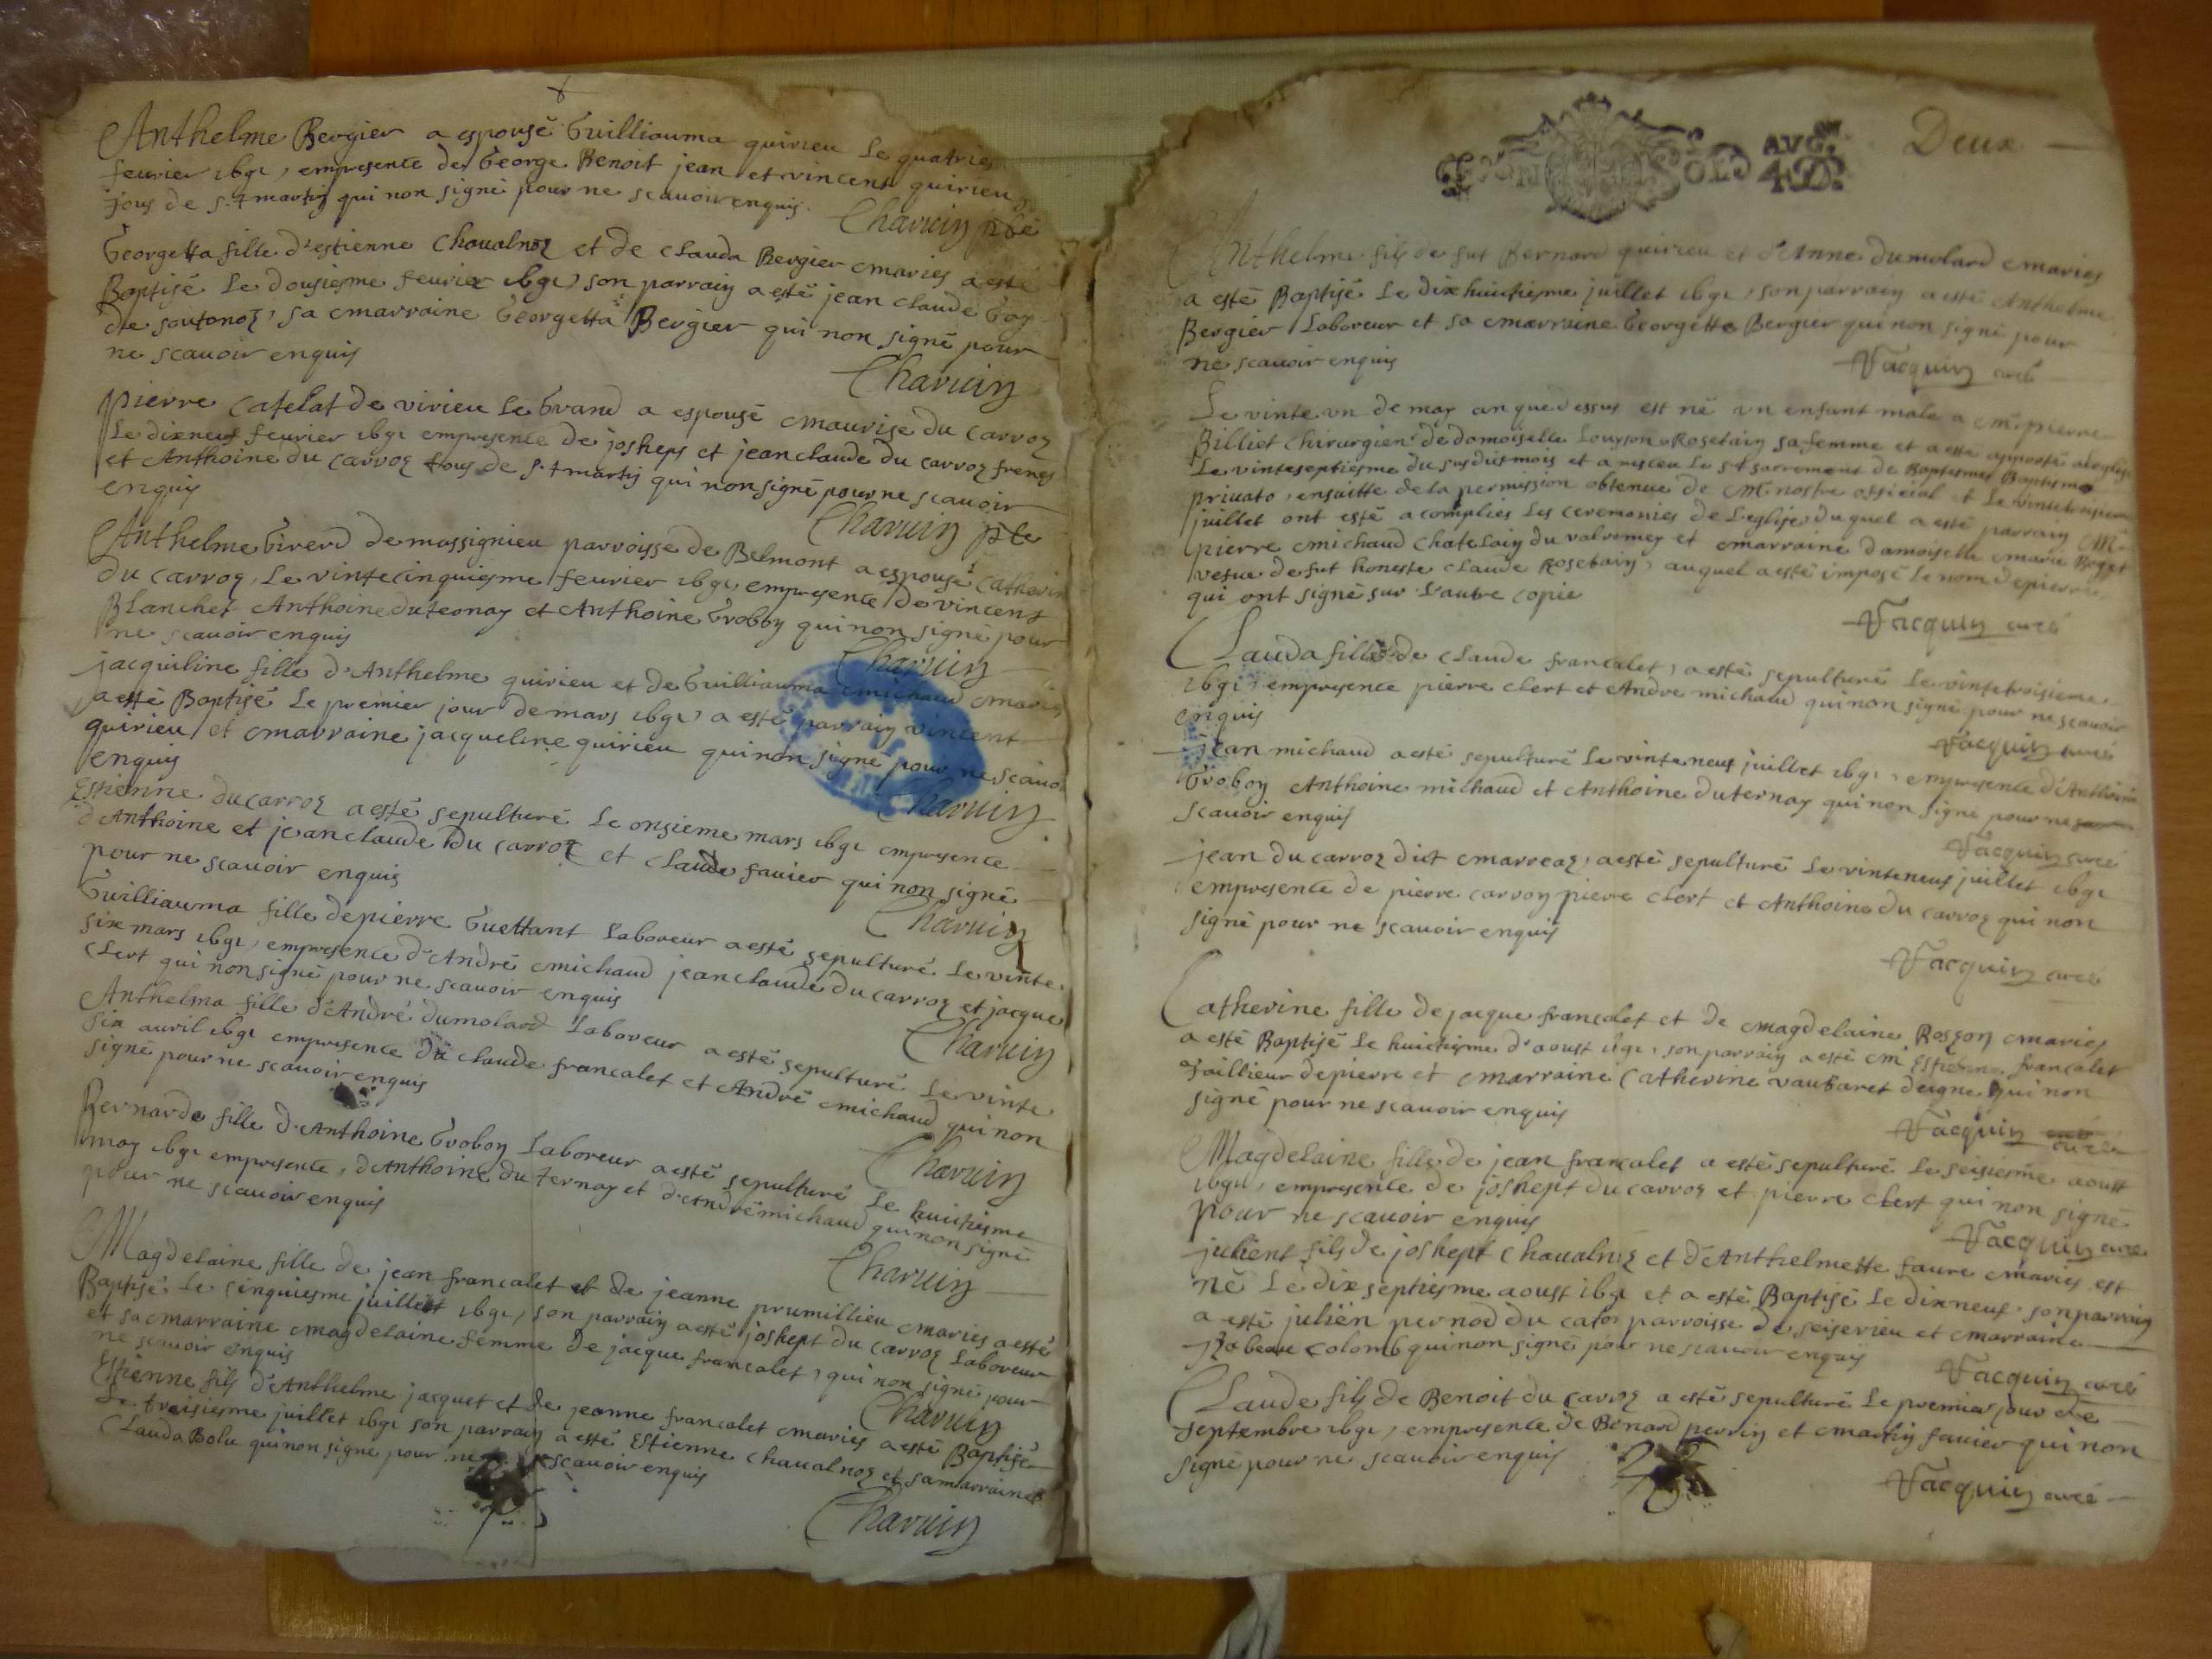 Anthelme Bergier a espousé Guilliauma quirieu le quatries
feurier 1691, empresence de George Benoit jean et vincent quirieu
tous de s.t martin qui non signé pour ne scauoir enquis.
Charuin pbr
Georgetta fille d'estienne Choualnoz et de Clauda Bergier mariés a esté
Baptisé Le dousiesme feurier 1691, son parrain a esté jean claude Goy
de soutonoz, sa marraine Georgetta Bergier qui non signé pour
ne scauoir enquis
Charuin
pierre Catelat de virieu le Grand a espousé maurise du Carroz
Le dixneuf feurier 1691 empresence de josheps et jeanclaude du carroz freres
et Anthoine du carroz tous de s.t martin qui non signé pour ne scauoir
enquis
Charuin pbr
Anthelme Girerd de massignieu parroisse de Belmont a espousé Catherin
du carroz, Le vintecinquiesme feurier 1691, empresence de vincent
Blanchet Anthoine duternay et Anthoine Groboz qui non signé pour
ne scauoir enquis
Charuin
jacquiline fille d'Anthelme quirieu et de Guilliauma michaud mariés
a esté Baptisé Le premier jour de mars 1691, a esté parrain vincent
quirieu et marraine jacqueline quirieu qui non signé pour ne scauoi
enquis
Charuin
Estienne du carroz a esté sepulturé Le onsieme mars 1691 empresence
d'Anthoine et jeanclaude du carroz et claude fauier qui non signé
pour ne scauoir enquis
Charuin
Guilliauma fille de pierre Guettant Laboreur a esté sepulturé Le vinte
six mars 1691, empresence d'André michaud jeanclaude du carroz et jacque
Clert qui non signé pour ne scauoir enquis
Charuin
Anthelma fille d'André dumolard Laboreur a esté sepulturé Le vinte
six auril 1691 empresence de claude francalet et André michaud qui non
signé pour ne scauoir enquis
Charuin
Bernarde fille d'Anthoine Groboz Laboreur a esté sepulturé Le huictiesme
may 1691 empresence, d'Anthoine du ternay et d'André michaud qui non signé
pour ne scauoir enquis
Charuin
Magdelaine fille de jean francalet et de jeanne prumillieu mariés a esté
Baptisé Le sinquiesme juillet 1691, son parrain a esté joshept du carroz Laboreur
et sa marraine magdelaine femme de jacque francalet, qui non signé pour
ne scauoir enquis
Charuin
Estienne fils d'Anthelme jacquet et de jeanne francalet mariés a esté Baptisé
Le treisiesme juillet 1691 son parrain a esté Estienne Choualnoz et sa marraine
Clauda Bolu qui non signé pour ne scauoir enquis
Charuin
AVG. 4 D.
Deux
Anthelme fils de fut Bernard quirieu et d'Anne dumolard mariés
a esté Baptisé Le dixhuictiesme juillet 1691, son parrain a esté Anthelme
Bergier Laboreur et sa marraine Georgette Bergier qui non signé pour
ne scauoir enquis
Jacquin curé
Le vinte vn de may an que dessus est né vn enfant male a m.e pierre
Billiet Chirurgien de damoiselle Louyson Rosetain sa femme et a esté apporté a leglise
Le vinteseptiesme du susdict mois et a resceu Le s.t sacrement de Baptesme Baptismo
priuato, ensuitte de la permission obtenue de M.r nostre official et Le vintetroisiesme
juillet ont esté acomplies Les ceremonies de L'eglise, duquel a esté parrain M.r
pierre michaud Chatelain du valromey et marraine damoiselle marie Boget
vefue de fut honeste claude Rosetain, auquel a esté imposé Le nom de pierre,
qui ont signé sur L'autre copie
Jacquin curé
Clauda fille de Claude francalet, a esté sepulturé Le vintetroisieme
1691, empresence pierre clert et André michaud qui non signé pour ne scauoir
enquis
Jacquin curé
jean michaud a esté sepulturé Le vinteneuf juillet 1691, empresence d'Anthoine
Groboz Anthoine michaud et Anthoine duternay qui non signé pour ne
scauoir enquis
Jacquin curé
jean du carroz dict marreaz, a esté sepulturé Le vinteneuf juillet 1691
empresence de pierre carron pierre clert et Anthoine du carroz qui non
signé pour ne scauoir enquis
Jacquin curé
Catherine fille de jacque francalet et de magdelaine Rosson mariés
a esté Baptisé Le huictiesme d'aoust 1691, son parrain a esté m.e Estienne francalet
taillieur de pierre et marraine Catherine vaubaret deigne qui non
signé pour ne scauoir enquis
Jacquin curé
Magdelaine fille de jean francalet a esté sepulturé Le seisiesme aoust
1691, empresence de joshept du carroz et pierre clert qui non signé
pour ne scauoir enquis
Jacquin curé
julient fils de joshept Choualnoz et d'Anthelmette faure mariés est
né Le dixseptiesme aoust 1691 et a esté Baptisé Le dixneuf, son parrain
a esté julien pernod du catos parroisse de seiserieu et marraine
jzabeau colomb qui non signé pour ne scauoir enquis
Jacquin curé
Claude fils de Benoit du carroz a esté sepulturé Le premier jour de
septembre 1691, empresence de Benard perrin et martin fauier qui non
signé pour ne scauoir enquis
Jacquin curé